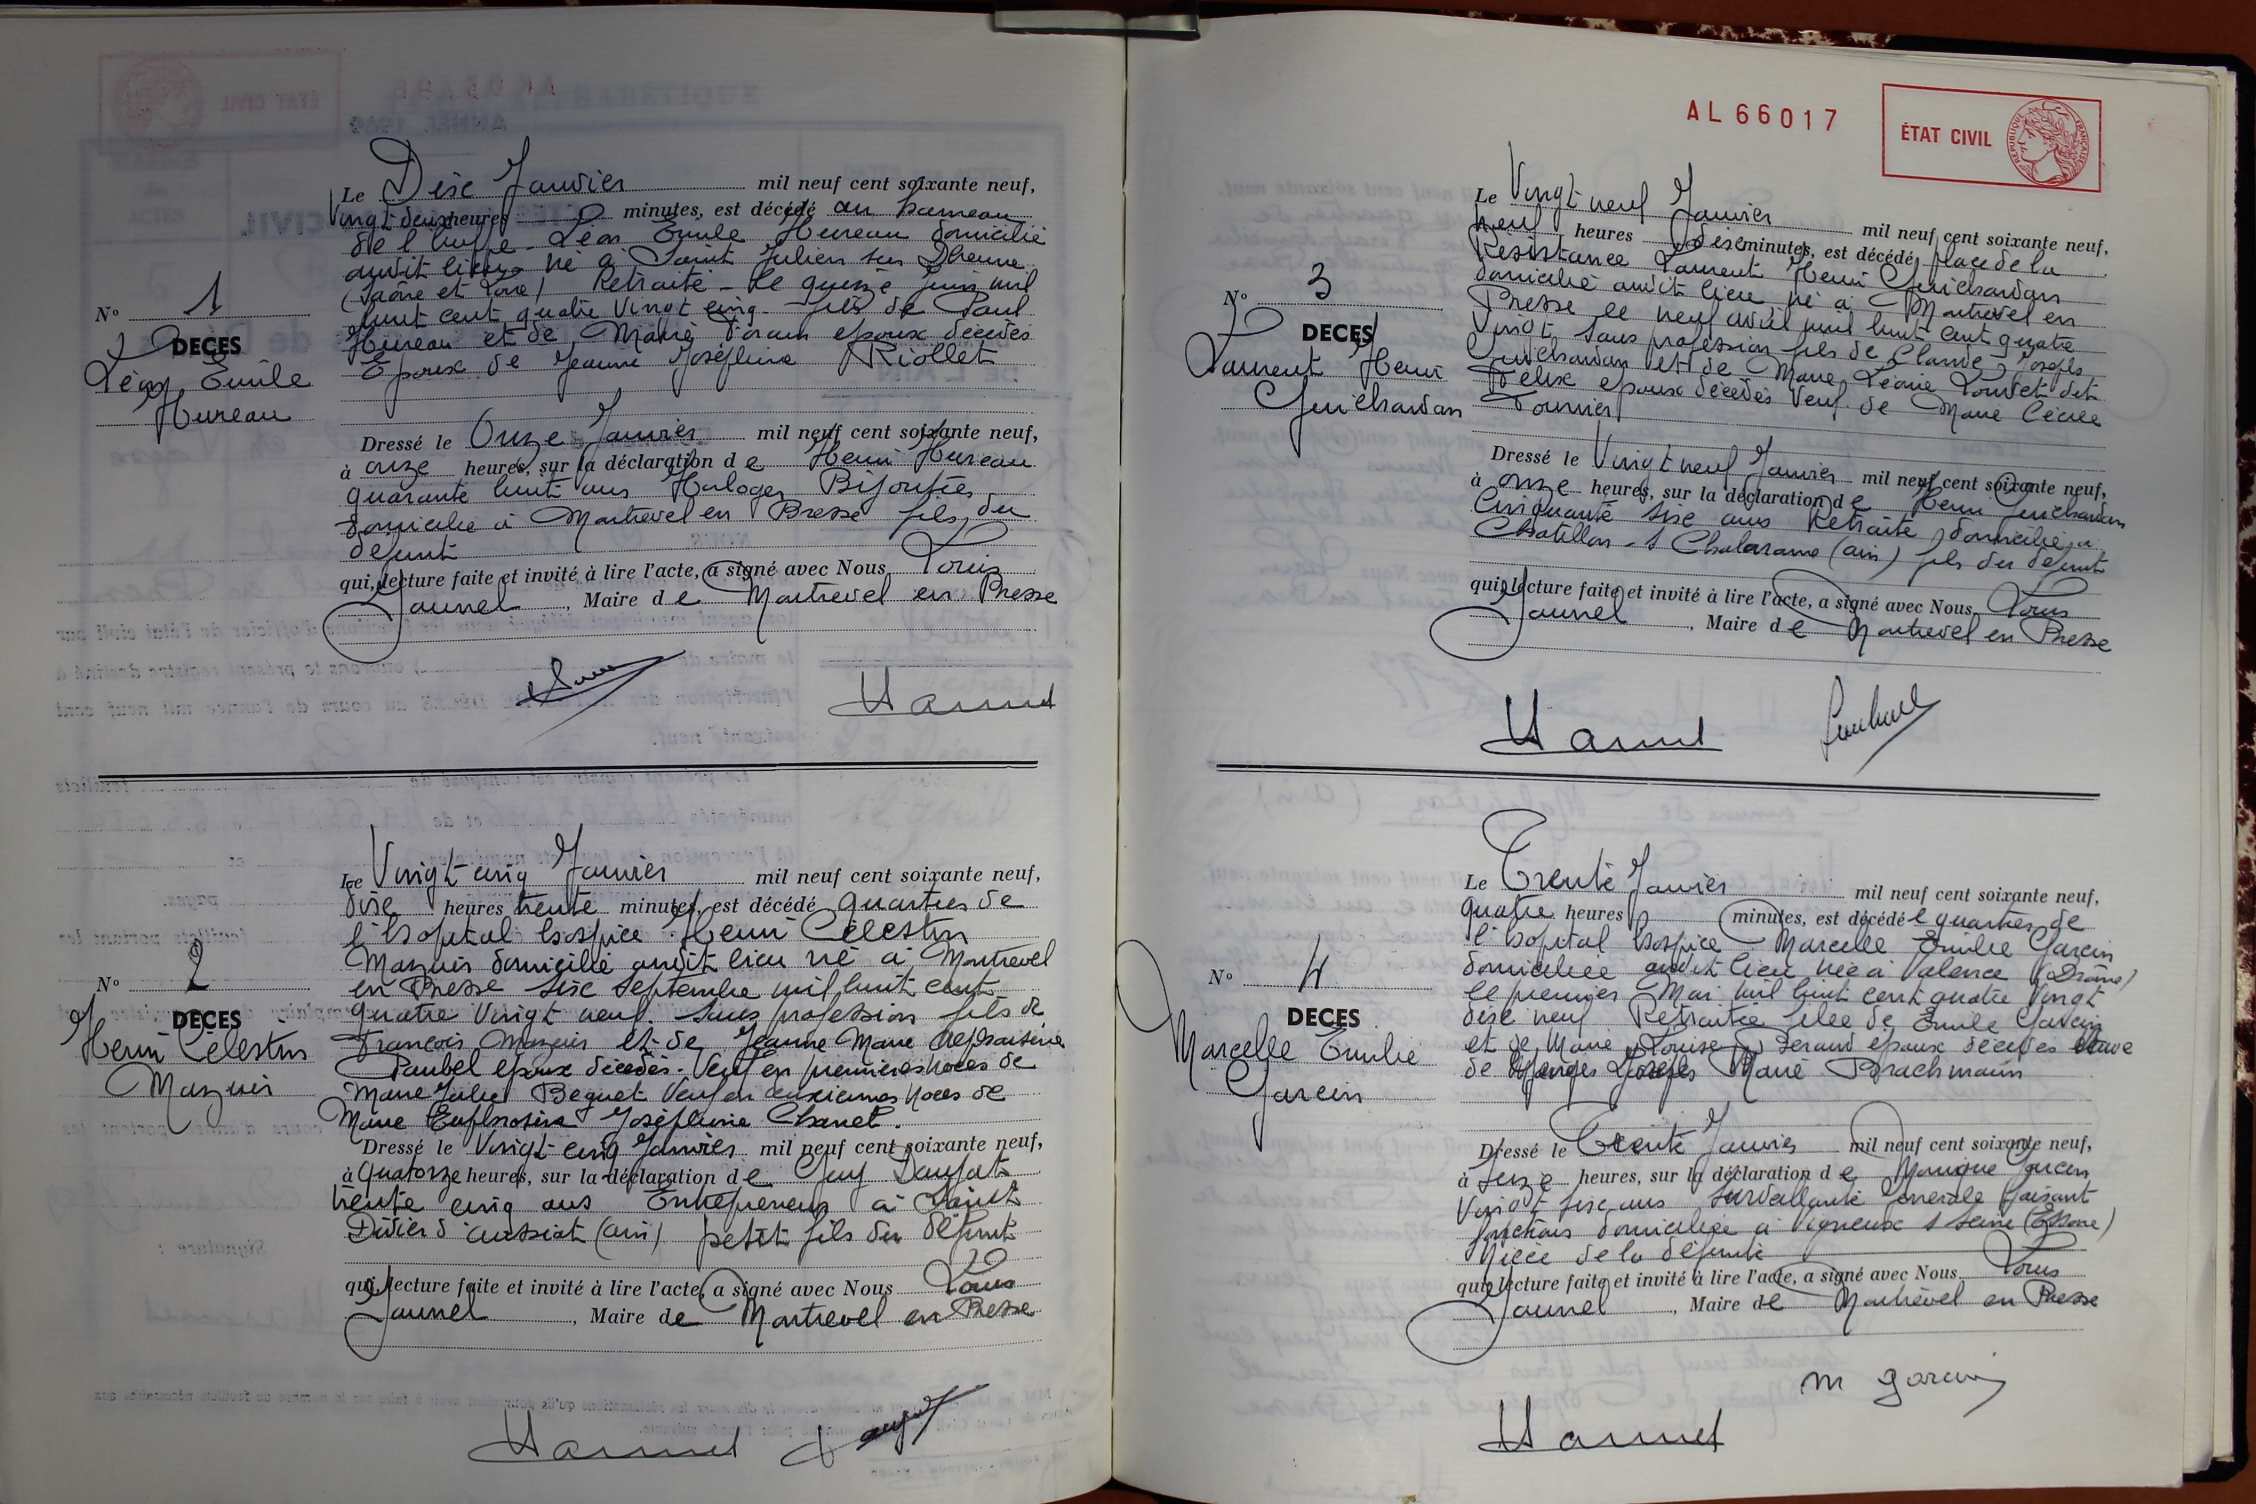 Le Dix Janvier mil neuf cent soixante neuf,
Vingt deux heures minutes, est décédé au hameau
de l'huppe - Léon Emile Hureau domicilié
audit lieu né à Saint Julien sur Dheune
(Saône et Loire) Retraité - le quinze Juin mil
huit cent quatre vingt cinq - fils de Paul
Hureau et de Marie époux décédés
Epoux de Jeanne Joséphine Riollet
N° 1
DECES
Léon Emile
Hureau
Dressé le Onze Janvier mil neuf cent soixante neuf,
à onze heures, sur la déclaration de Henri Hureau
quarante huit ans Horloger Bijoutier
domicilié à Montrevel en Bresse fils du
défunt
qui, lecture faite et invité à lire l'acte, a signé avec Nous Louis
Jaunel, Maire de Montrevel en Bresse
Le Vingt cinq Janvier mil neuf cent soixante neuf,
dix heures trente minutes, est décédé quartier de
l'hopital hospice Henri Célestin
Mazuir domicilié audit lieu né à Montrevel
en Bresse six septembre mil huit cent
quatre vingt neuf. sans profession fils de
François Mazuir et de Jeanne Marie
Paubel epoux décédés. Veuf en premieres noces de
Marie Julie Beguet Veuf en deuxiemes noces de
Marie Euphrosine Joséphine Chanel.
N° 2
DECES
Henri Célestin
Mazuir
Dressé le Vingt cinq Janvier mil neuf cent soixante neuf,
à Quatorze heures, sur la déclaration de Guy Daujat
trente cinq ans Entrepreneur à Saint
Didier d'aussiat (ain) petit fils du défunt
qui, lecture faite et invité à lire l'acte, a signé avec Nous Louis
Jaunel, Maire de Montrevel en Bresse
AL 66017
ÉTAT CIVIL
RÉPUBLIQUE FRANÇAISE
Le Vingt neuf Janvier mil neuf cent soixante neuf,
neuf heures dix minutes, est décédé place de la
Résistance Laurent Henri Guichardan
domicilié audit lieu né à Montrevel en
Bresse le neuf avril mil huit cent quatre
vingt sans profession fils de Claude, Joseph,
Guichardan et de Marie, Léonie Louvet dit
Félix epoux décédés Veuf de Marie Cécile
Tournier
N° 3
DECES
Laurent Henri
Guichardan
Dressé le Vingt neuf Janvier mil neuf cent soixante neuf,
à onze heures, sur la déclaration de Henri Guichardan
Cinquante six ans Retraité, domicilié à
Chatillon - s Chalaronne (ain) fils du défunt
qui, lecture faite et invité à lire l'acte, a signé avec Nous, Louis
Jaunel, Maire de Montrevel en Bresse
Le Trente Janvier mil neuf cent soixante neuf,
quatre heures minutes, est décédée quartier de
l'hopital hospice Marcelle Emilie Garcin
domiciliée audit lieu née à Valence (Drôme)
le premier Mai mil huit cent quatre vingt
dix neuf Retraitée fille de Emile Garcin
et de Marie Louise Serand epoux décédés veuve
de Georges Joseph Marie Brachmann
N° 4
DECES
Marcelle Emilie
Garcin
Dressé le Trente Janvier mil neuf cent soixante neuf,
à Seize heures, sur la déclaration de Monique Garcin
Vingt six ans Surveillante Générale faisant
fonctions domiciliée à Vigneux s Seine (Essonne)
Nièce de la défunte
qui, lecture faite et invité à lire l'acte, a signé avec Nous Louis
Jaunel, Maire de Montrevel en Bresse
M Garcin